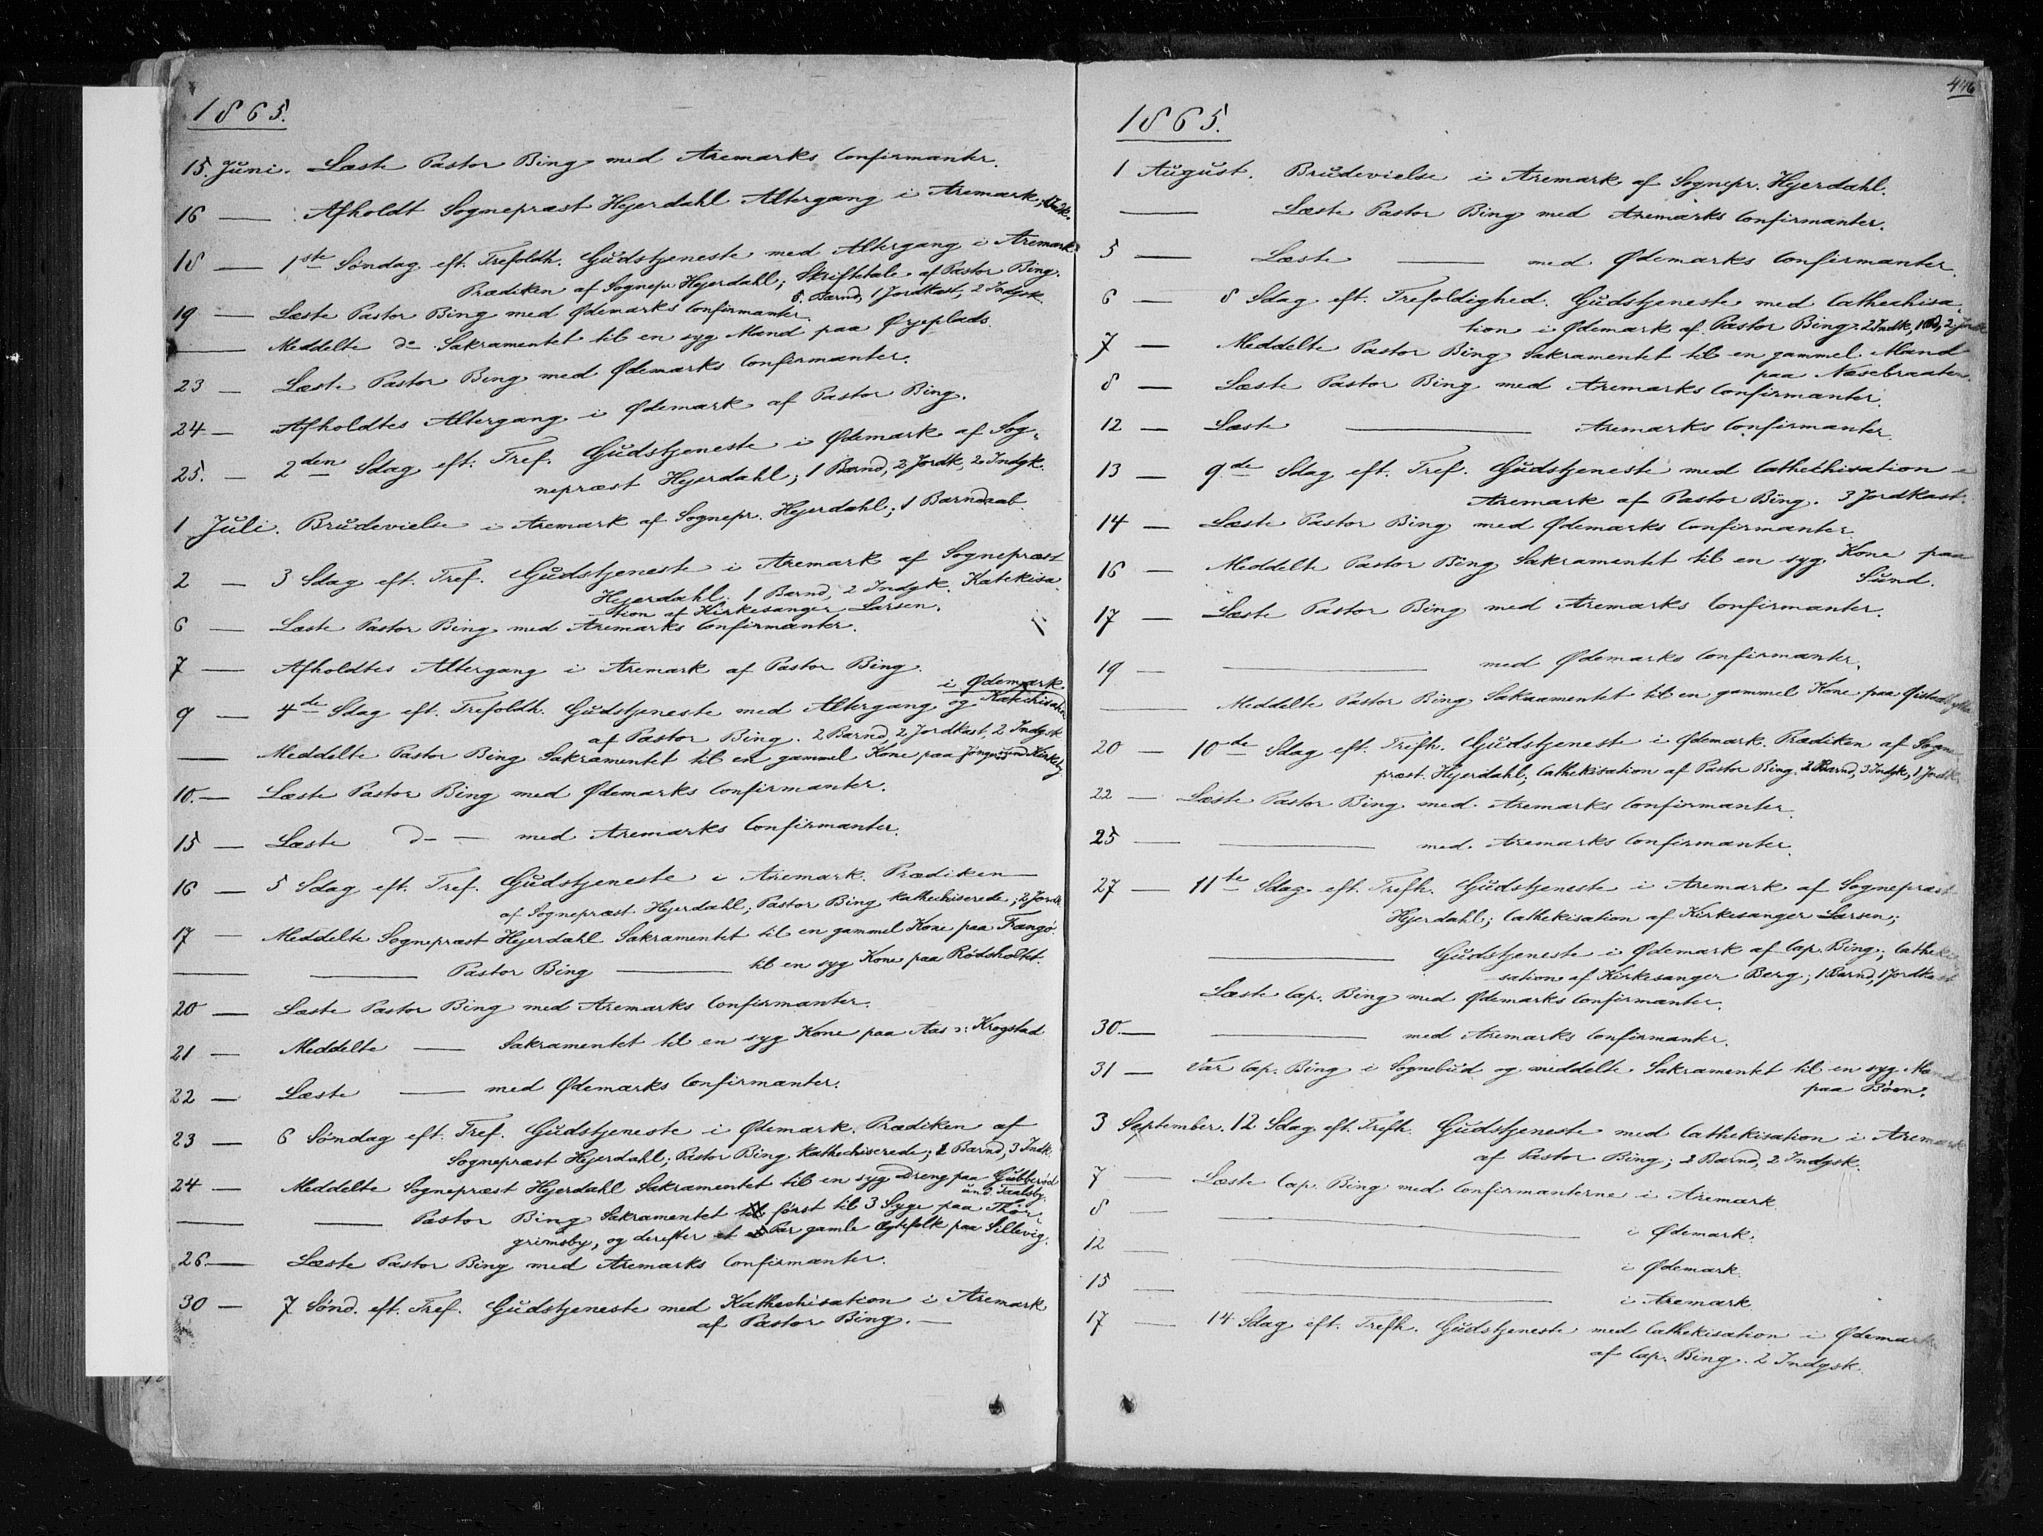 1865.
15. Juni. Læste Pastor Bing med Aremarks Confirmanter.
16 — Afholdt Sognepræst Hejerdahl Altergang i Aremark,
18 — 1ste Søndag eft. Trefoldh. Gudstjeneste med Altergang i Aremark
Prædiken af Sognepr. Hejerdahl; Skriftetale af Pastor Bing.
5. Barnd, 1 Jordkast, 2 Indgsk.
19 — Læste Pastor Bing med Ødemarks Confirmanter.
— Meddelte do Sakramentet til en syg Mand paa Ørjeplads.
23 — Læste Pastor Bing med Ødemarks Confirmanter.
24 — Afholdtes Altergang i Ødemark af Pastor Bing.
25. — 2den Sdag eft. Tref. Gudstjeneste i Ødemark af Sog-
nepræst Hejerdahl; 1 Barnd, 2 Jordk, 2 Indgk.
1 Juli. Brudevielse i Aremark af Sognepr. Hejerdahl; 1 Barnedaab.
2 — 3 Sdag eft. Tref. Gudstjeneste i Aremark af Sognepræst
Hejerdahl; 1 Barnd, 2 Indgk. Katekisa-
tion af Kirkesanger Larsen.
6 — Læste Pastor Bing med Aremarks Confirmanter.
7 — Afholdtes Altergang i Aremark af Pastor Bing.
i Ødemark
9 — 4de Sdag eft. Trefoldh. Gudstjeneste med Altergang og Katechisation
af Pastor Bing. 2 Barnd, 2 Jordkast, 2 Indgsk
— Meddelte Pastor Bing Sakramentet til en gammel Kone paa
10. — Læste Pastor Bing med Ødemarks Confirmanter.
15 — Læste do — med Aremarks Confirmanter.
16 — 5 Sdag eft. Tref. Gudstjeneste i Aremark. Prædiken
af Sognepræst Hejerdahl; Pastor Bing kathechiserede; 2 Jordk
17 — Meddelte Sognepræst Hejerdahl Sakramentet til en gammel Kone paa Fangø.
— — Pastor Bing — til en syg Kone paa Rødsholtet.
20 — Læste Pastor Bing med Aremarks Confirmanter.
21 — Meddelte — Sakramentet til en syg Kone paa Aas v: Krogstad
22 — Læste — med Ødemarks Confirmanter.
23 — 6 Søndag eft. Tref. Gudstjeneste i Ødemark. Prædiken af
Sognepræst Hejerdahl; Pastor Bing kathechiserede; 2 Barnd, 3 Indk.
24 — Meddelte Sognepræst Hejerdahl Sakramentet til en syg Dreng paa Gubberød
und. Taalsby.
— — Pastor Bing Sakramentet først til 3 Syge paa Thor-
grimsby, og derefter et Par gamle Ægtefolk paa Sillevig.
26. — Læste Pastor Bing med Aremarks Confirmanter.
30 — 7 Sønd. eft. Tref. Gudstjeneste med Kathechisation i Aremark
af Pastor Bing. —
446
1865.
1 August. Brudevielse i Aremark af Sognepr. Hejerdahl.
— Læste Pastor Bing med Aremarks Confirmanter.
5 — Læste — med Ødemarks Confirmanter.
6 — 8 Sdag eft. Trefoldighed. Gudstjeneste med Cathechisa-
tion i Ødemark af Pastor Bing. 2 Indk, 1 Bd, 2 Jordk
7 — Meddelte Pastor Bing Sakramentet til en gammel Mand
paa Næsebraaten.
8 — Læste Pastor Bing med Aremarks Confirmanter.
12 — Læste — Aremarks Confirmanter.
13 — 9de Sdag eft. Tref. Gudstjeneste med Cathechisation i
Aremark af Pastor Bing. 3 Jordkast.
14 — Læste Pastor Bing med Ødemarks Confirmanter.
16 — Meddelte Pastor Bing Sakramentet til en syg Kone paa
Sund.
17 — Læste Pastor Bing med Aremarks Confirmanter.
19 — — med Ødemarks Confirmanter.
— Meddelte Pastor Bing Sakramentet til en gammel Kone paa
20 — 10de Sdag eft. Trefh. Gudstjeneste i Ødemark. Prædiken af Sogne-
præst Hejerdahl; Cathekisation af Pastor Bing. 2 Barnd, 3 Indgk, 1 Jordk.
22 — Læste Pastor Bing med Aremarks Confirmanter.
25 — — med Aremarks Confirmanter.
27 — 11te Sdag eft. Trefh. Gudstjeneste i Aremark af Sognepræst
Hejerdahl; Cathekisation af Kirkesanger Larsen;
— Gudstjeneste i Ødemark af Cap. Bing; Catheki-
sation af Kirkesanger Berg; 1 Barnd, 1 Jordkast
Læste Cap. Bing med Ødemarks Confirmanter.
30 — — med Aremarks Confirmanter.
31 — Var Cap. Bing i Sognebud og meddelte Sakramentet til en syg Mand
paa Bøen.
3 September. 12 Sdag eft. Trefh. Gudstjeneste med Cathekisation i Aremark
af Pastor Bing; 2 Barnd, 2 Indgsk.
7 — Læste Cap. Bing med Confirmanterne i Aremark.
8 — — i Ødemark.
12 — — i Ødemark.
15 — — i Aremark
17 — 14 Sdag eft. Trefh. Gudstjeneste med Cathekisation i Ødemark
af Cap. Bing. 2 Indgsk.